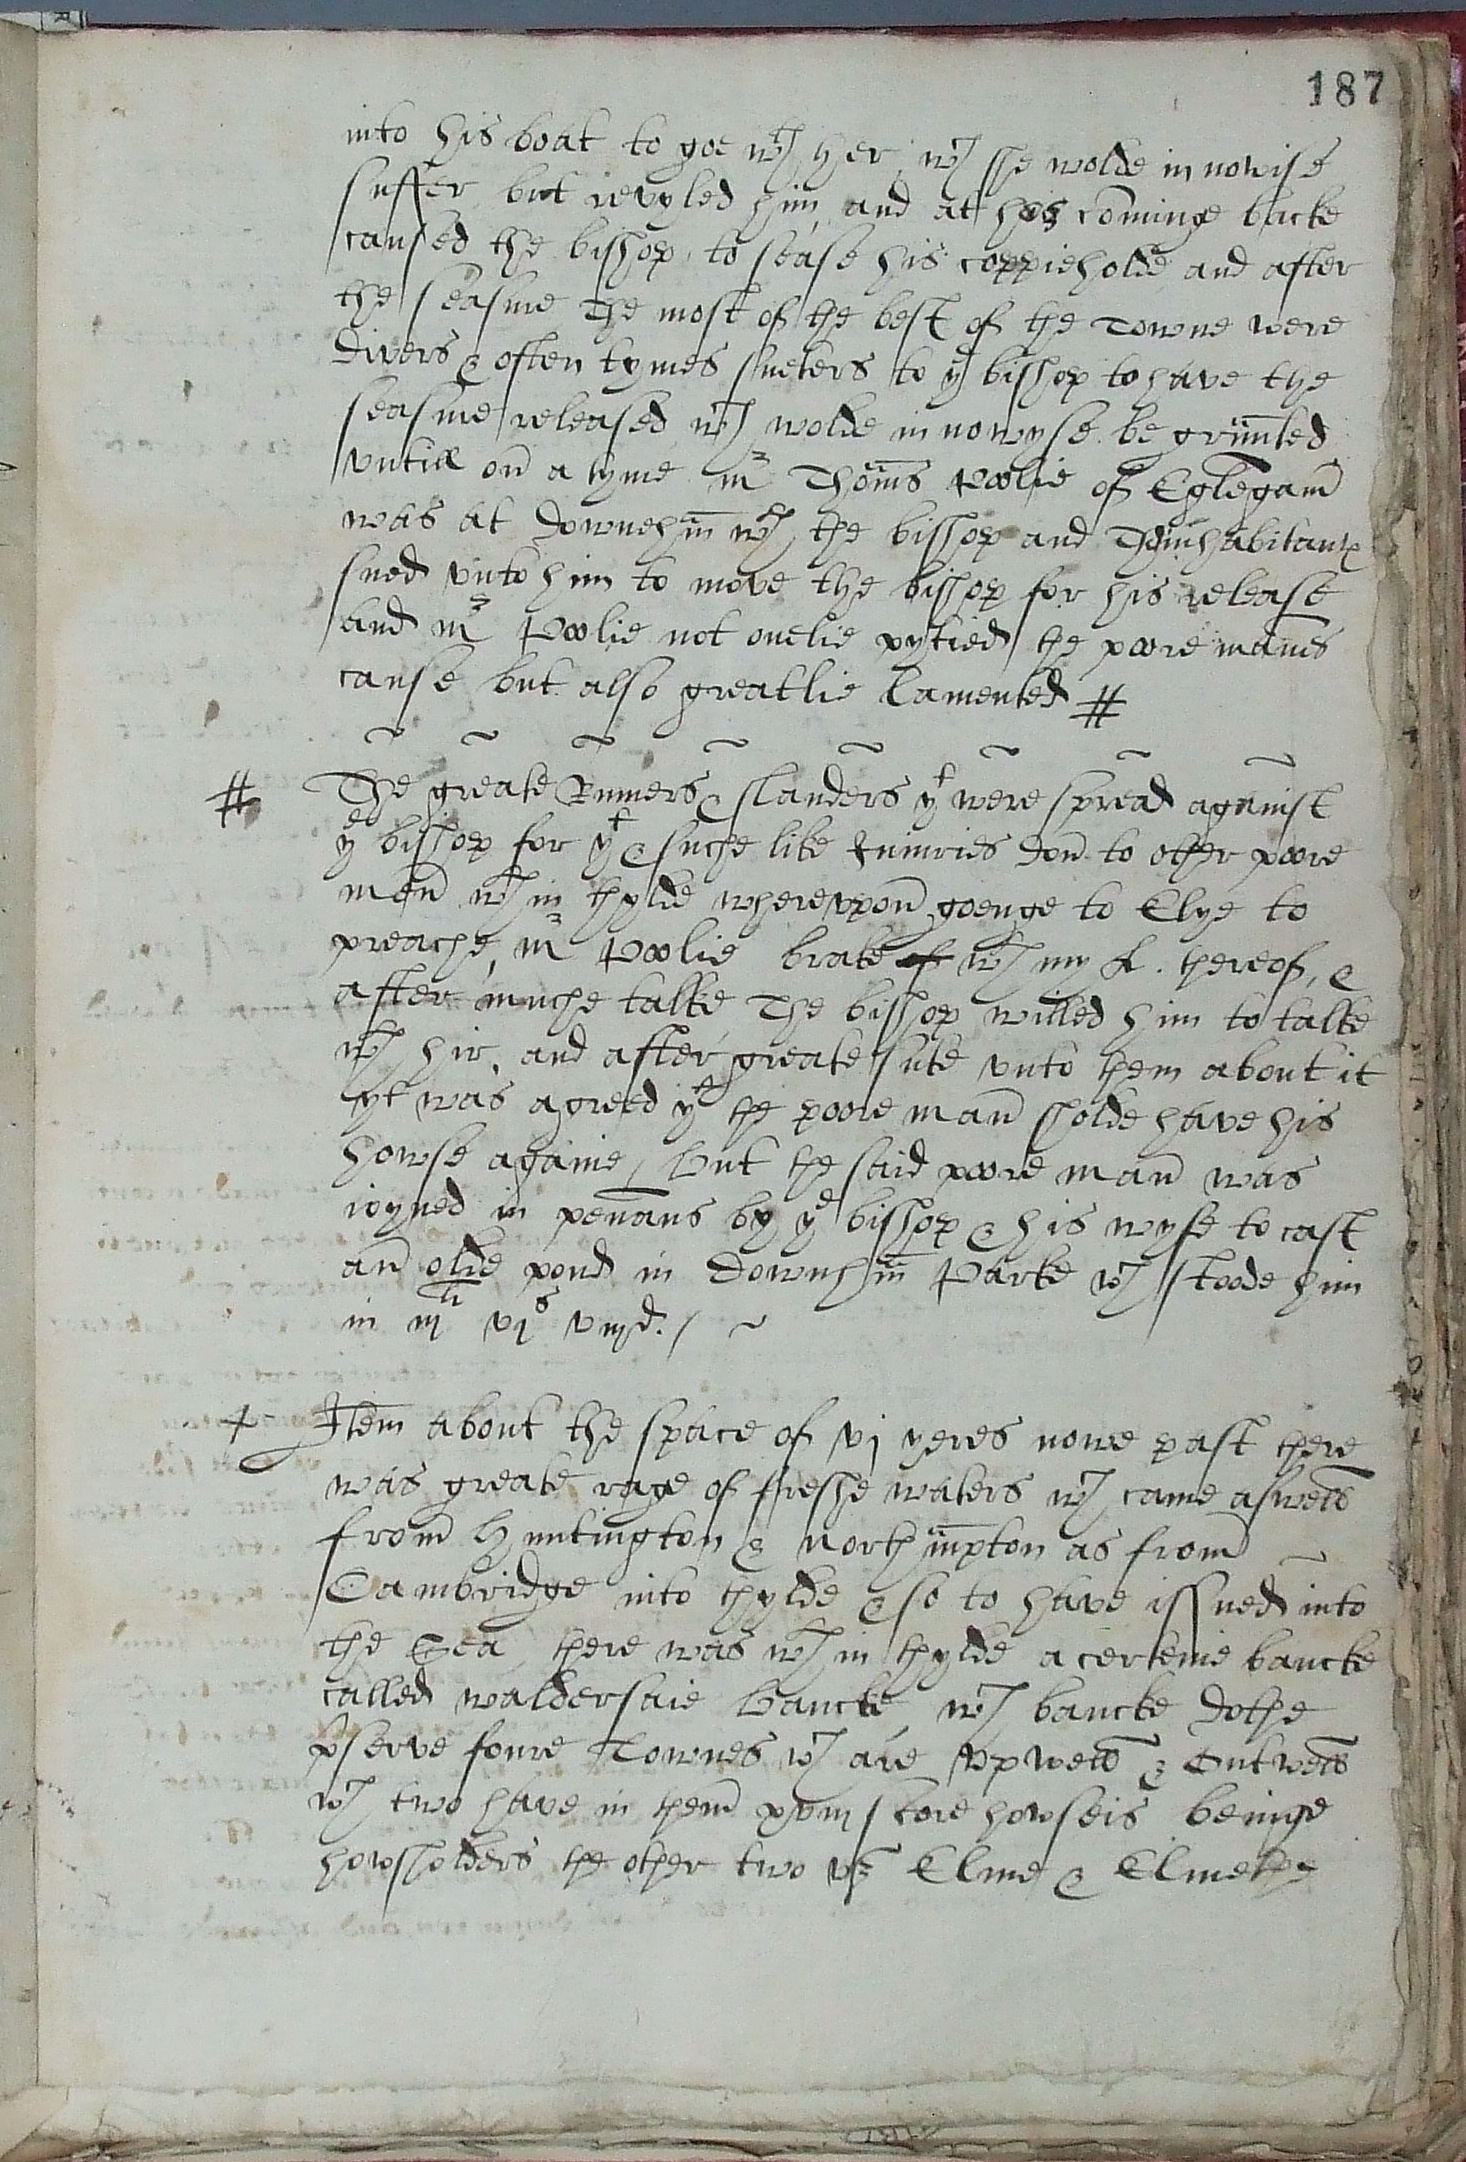 187
into his boat to goe wth her, wch she wolde in nowise
suffer but revyled him, and at his cominge backe
caused the bisshop to sease his coppieholde and after
the seasure The most of the best of the Towne were
divers & often tymes sueters to ye bisshop to have the
seasure released wch wolde in nowyse be graunted
vntill on a tyme mr Thoms Poolie of Eglegam
was at Downeham wth the bisshop and Thinhabitantes
sued vnto him to move the bisshop for his release
and mr Poolie not onelie pytied the poore manes
cause but also greatlie Lamented #
# The greate Rumers & slanders yt were spread against
ye bisshop for yt & suche like Iniuries don to other poore
men wth in thylde wherevpon goenge to Elye to
preache, mr Poolie brake of wth my L. thereof, &
after muche talke, The bisshop willed him to talke
wth hir, and after greate sute vnto them about it
yt was agreed yt the poore man sholde have his
howse againe, But the said poore man was
ioyned in penans by ye bisshop & his wyfe to cast
an olde pond in Downham Parke wch stoode him
in iijli vjs viijd. /
+ Item about the space of vj yeres nowe past there
was greate rage of freshe waters wch came aswell
from Huntington & Northampton as from
Cambridge into thylde & so to have issued into
the Sea, there was wth in thylde a certeine bancke
called waldersaie Bancke, wch bancke dothe
pserve foure Townes wch are vpwell & Outwell
wch two have in them xviij score howseis beinge
howsholders the other two vz Elme & Elmeth